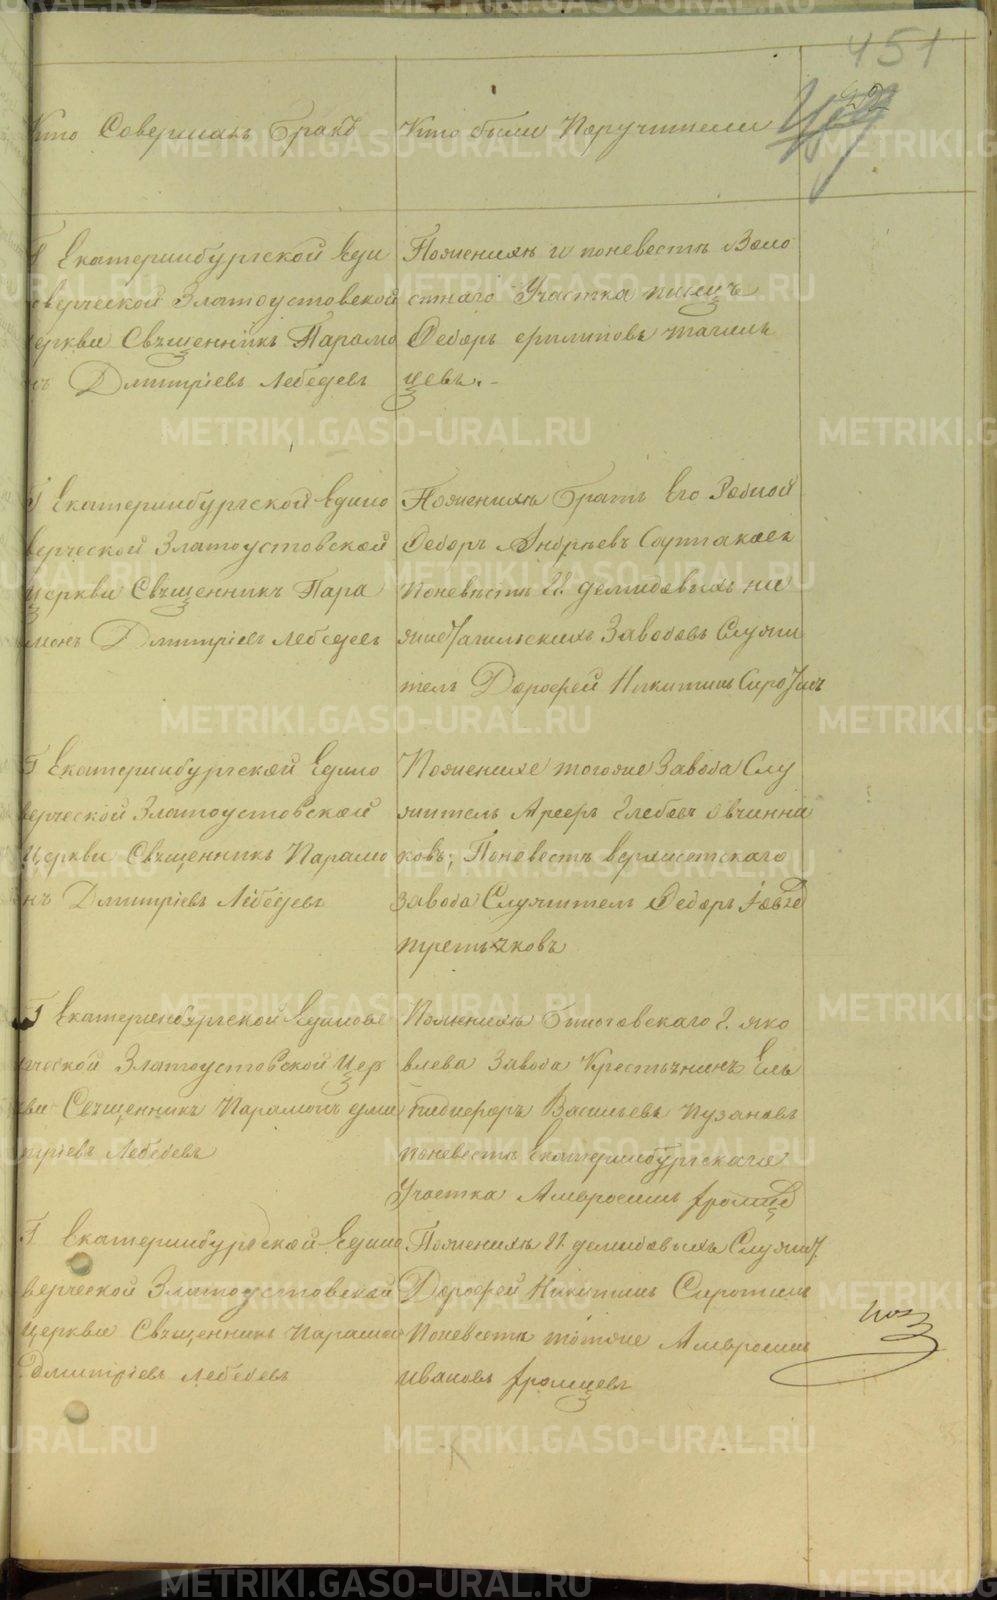 451
Кто Совершалъ Бракъ
Кто были Поручители
Г Екатеринбургской Еди
новерческой Златоустовской
церкви Свѣщенникъ Парамо
нъ Дмитріевъ Лебедевъ
Поженихѣ и поневестѣ Воло
стнаго Участка писецъ
Федоръ Филиповъ тагиль
цевъ.-
Г Екатеринбургской Едино
верческой Златоустовской
Церкви Свѣщенникъ Пара
монъ Дмитріевъ Лебедевъ
Пожениху Братъ Его Родной
Федоръ Андрѣевъ
Поневѣстѣ Гг. демидовыхъ ни
жнетагильскихъ Заводовъ Служи
тель Дорофей Никитинъ Сиротинъ
Г Екатеринбургской Едино
верческой Златоустовской
Церкви Свѣщенникъ Парамо
нъ Дмитріевъ Лебедевъ
Пожених тогоже Завода Слу
житель Глебовъ овчинни
ковъ; Поневестѣ верхисетскаго
завода Служитель Федоръ
третьяковъ
Г Екатеринбургской Единове
рческой Златоустовской Цер
кви Свещенникъ Парамонъ дми
тріевъ Лебедевъ
Пожениху Г. яко
влева Завода Крестьянинъ Ель
пидифоръ Васильевъ Пузановъ
поневестѣ Екатеринбургскаго
Участка Амвросинъ
Г Екатеринбургской Едино
верческой Златоустовской
церкви Свѣщенникъ Парамон
Дмитріевъ Лебедевъ
Пожениху Гг. демидовыхъ Служит.
Дорофей Никитинъ Сиротинъ
Поневестѣ тотже Амвросинъ
ивановъ